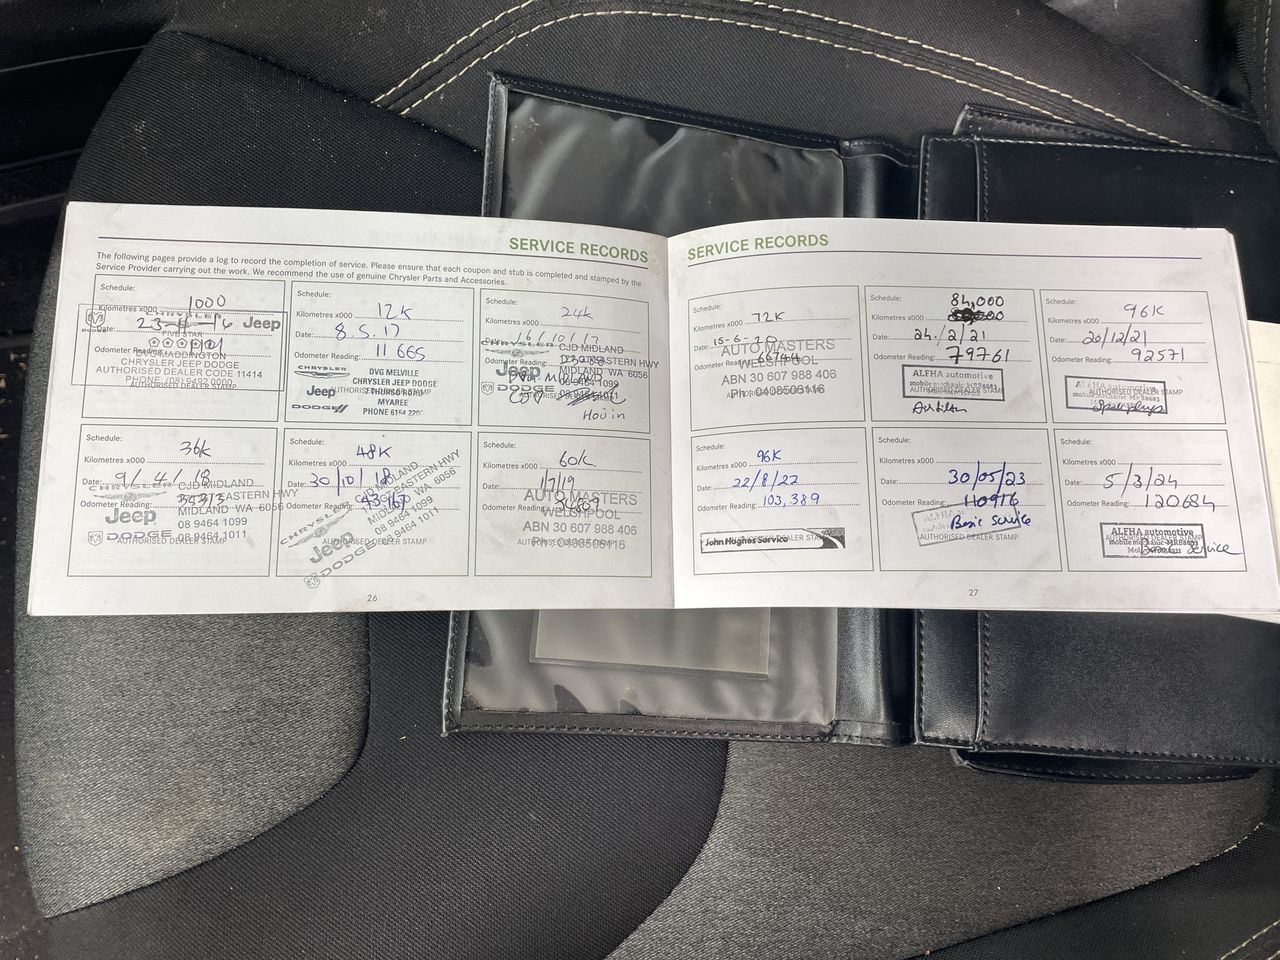 SERVICE RECORDS
The following pages provide a log to record the completion of service. Please ensure that each coupon and stub is completed and stamped by the
Service Provider carrying out the work. We recommend the use of genuine Chrysler Parts and Accessories.
Schedule:
Kilometres x000 1000
Date:
Odometer Reading:
Jeep
FIVE STAR
CHRYSLER JEEP DODGE
AUTHORISED DEALER CODE 11414
PHONE: (08) 9492 0000
AUTHORISED DEALER STAMP
Schedule:
Kilometres x000 12K
Date: 8.5.17
Odometer Reading: 11665
CHRYSLER
Jeep
DODGE
DVG MELVILLE
CHRYSLER JEEP DODGE
AUTHORISED DEALER STAMP
MYAREE
PHONE 6164
Schedule:
24K
Kilometres x000
Date: 16/10/17
Odometer Reading:
CHRYSLER
Jeep
DODGE
CJD MIDLAND
EASTERN HWY
MIDLAND WA 6056
08 9464 1099
AUTHORISED DEALER STAMP
Schedule:
Kilometres x000 36K
Date: 9/4/18
Odometer Reading:
CHRYSLER
Jeep
DODGE
CJD MIDLAND
EASTERN HWY
MIDLAND WA 6056
08 9464 1099
08 9464 1011
AUTHORISED DEALER STAMP
Schedule:
Kilometres x000 48K
Date: 30/10/18
Odometer Reading:
CHRYSLER
Jeep
DODGE
MIDLAND
EASTERN HWY
MIDLAND WA 6056
08 9464 1099
08 9464 1011
AUTHORISED DEALER STAMP
Schedule:
Kilometres x000 60K
Date: 1/7/19
Odometer Reading:
AUTO MASTERS
WELSHPOOL
ABN 30 607 988 406
Ph: 0408506116
AUTHORISED DEALER STAMP
26
SERVICE RECORDS
Schedule:
Kilometres x000 72K
Date: 15-6-20
Odometer Reading:
AUTO MASTERS
WELSHPOOL
ABN 30 607 988 406
Ph: 0408506116
AUTHORISED DEALER STAMP
Schedule: 84,000
Kilometres x000
Date: 24/2/21
Odometer Reading: 79761
ALFHA automotive
mobile mechanic MRB8683
AUTHORISED DEALER STAMP
Schedule:
Kilometres x000 96K
Date: 20/12/21
Odometer Reading: 92571
ALFHA automotive
mobile mechanic MRB8683
AUTHORISED DEALER STAMP
Schedule:
Kilometres x000 96K
Date: 22/8/22
Odometer Reading: 103,389
John Hughes Service
AUTHORISED DEALER STAMP
Schedule:
Kilometres x000
Date: 30/05/23
Odometer Reading: 110916
Basic Service
AUTHORISED DEALER STAMP
Schedule:
Kilometres x000
Date: 5/3/24
Odometer Reading: 120684
ALFHA automotive
mobile mechanic MRB8683
AUTHORISED DEALER STAMP
Service
27